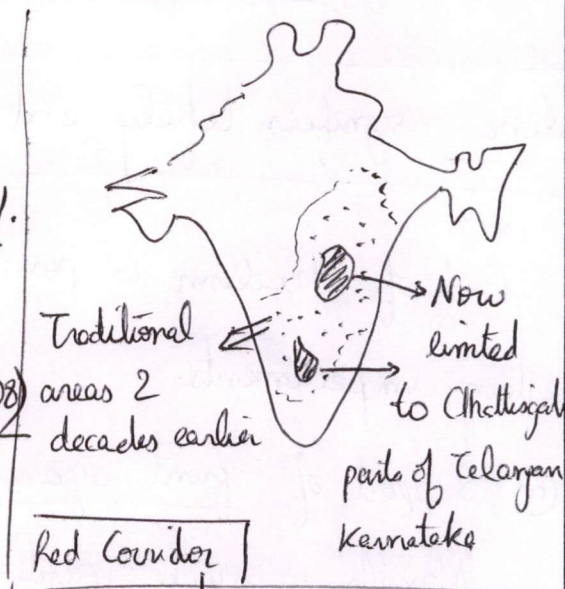 Traditional
areas 2
decades earlier
Now
limited
to Chattisgah
parts of Telangan
Karnataka
Red Corridor
8)